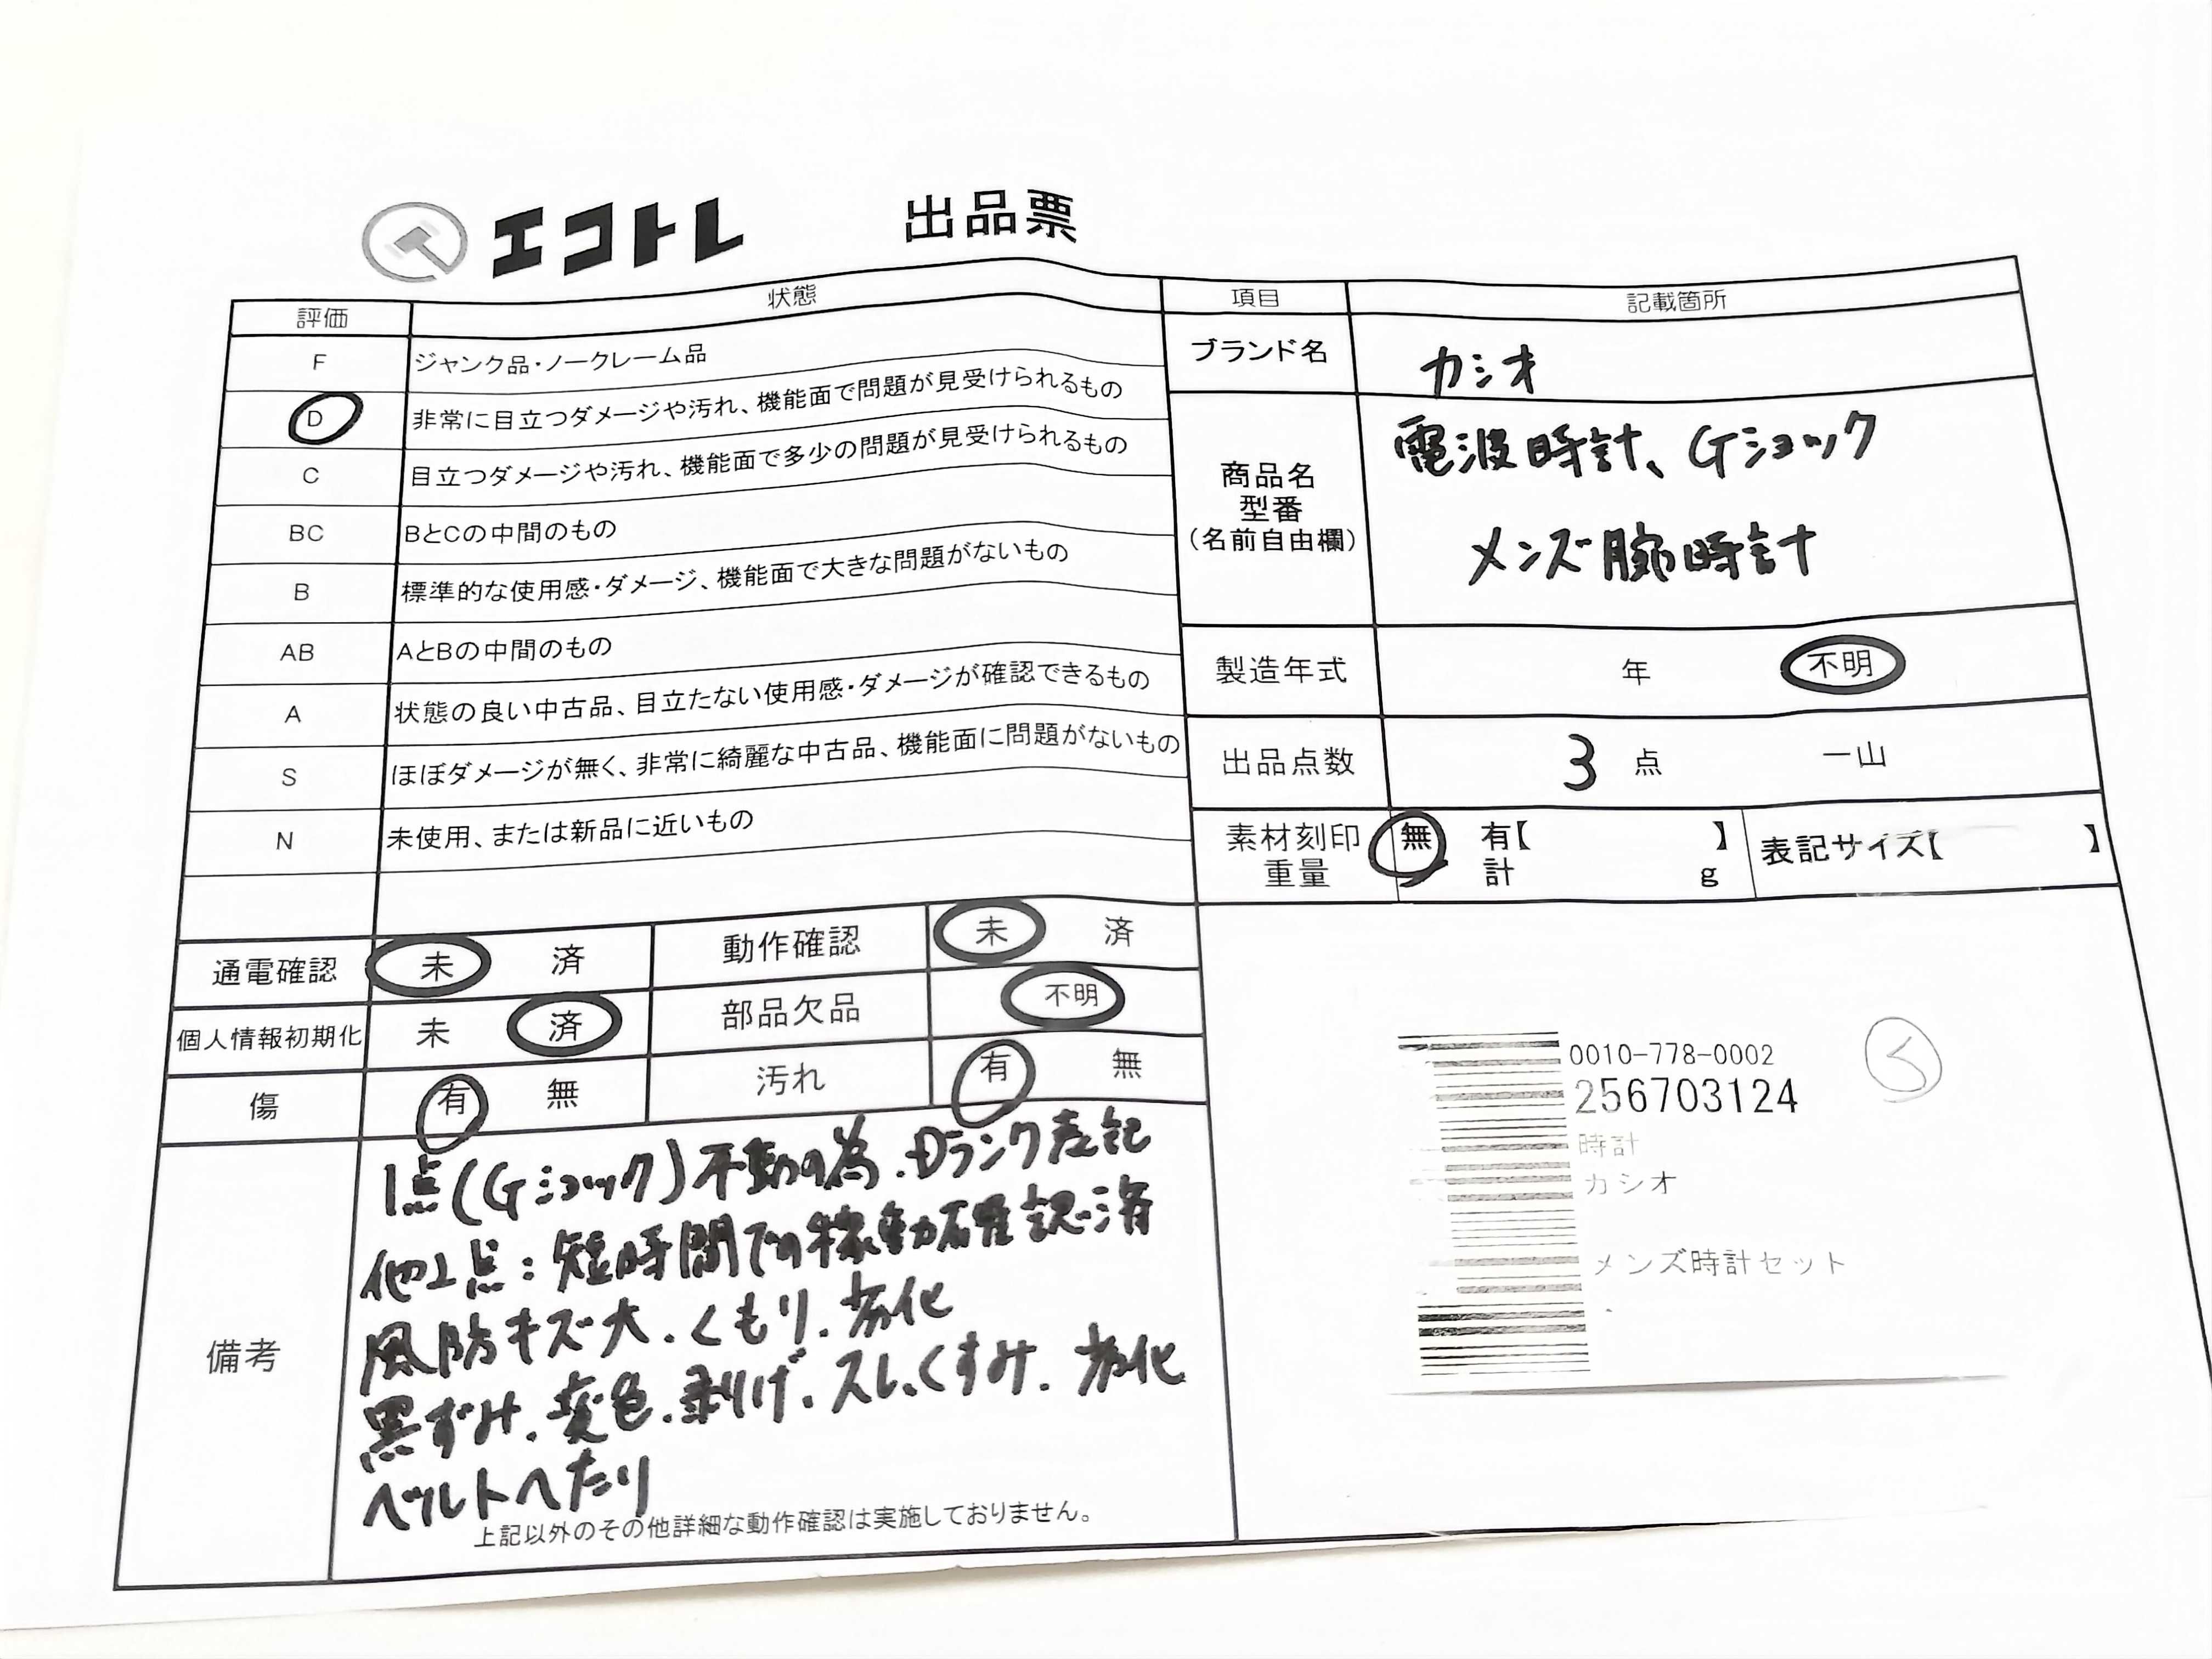 エコトレ 出品票
評価 状態
F ジャンク品・ノークレーム品
D 非常に目立つダメージや汚れ、機能面で問題が見受けられるもの
C 目立つダメージや汚れ、機能面で多少の問題が見受けられるもの
BC BとCの中間のもの
B 標準的な使用感・ダメージ、機能面で大きな問題がないもの
AB AとBの中間のもの
A 状態の良い中古品、目立たない使用感・ダメージが確認できるもの
S ほぼダメージが無く、非常に綺麗な中古品、機能面に問題がないもの
N 未使用、または新品に近いもの
通電確認 未 済 動作確認 未 済
個人情報初期化 未 済 部品欠品 不明
傷 有 無 汚れ 有 無
備考
1点(Gショック)不動の為.Dランク表記
他2点:短時間での稼動確認済
風防キズ大.くもり.劣化
黒ずみ.変色.剥げ.スレ.くすみ.劣化
ベルトヘたり
上記以外のその他詳細な動作確認は実施しておりません。
項目 記載箇所
ブランド名 カシオ
商品名
型番
(名前自由欄)
電波時計、Gショック
メンズ腕時計
製造年式 年 不明
出品点数 3 点 一山
素材刻印 無 有【 】
重量 計 g
表記サイズ【 】
0010-778-0002
256703124
時計
カシオ
メンズ時計セット